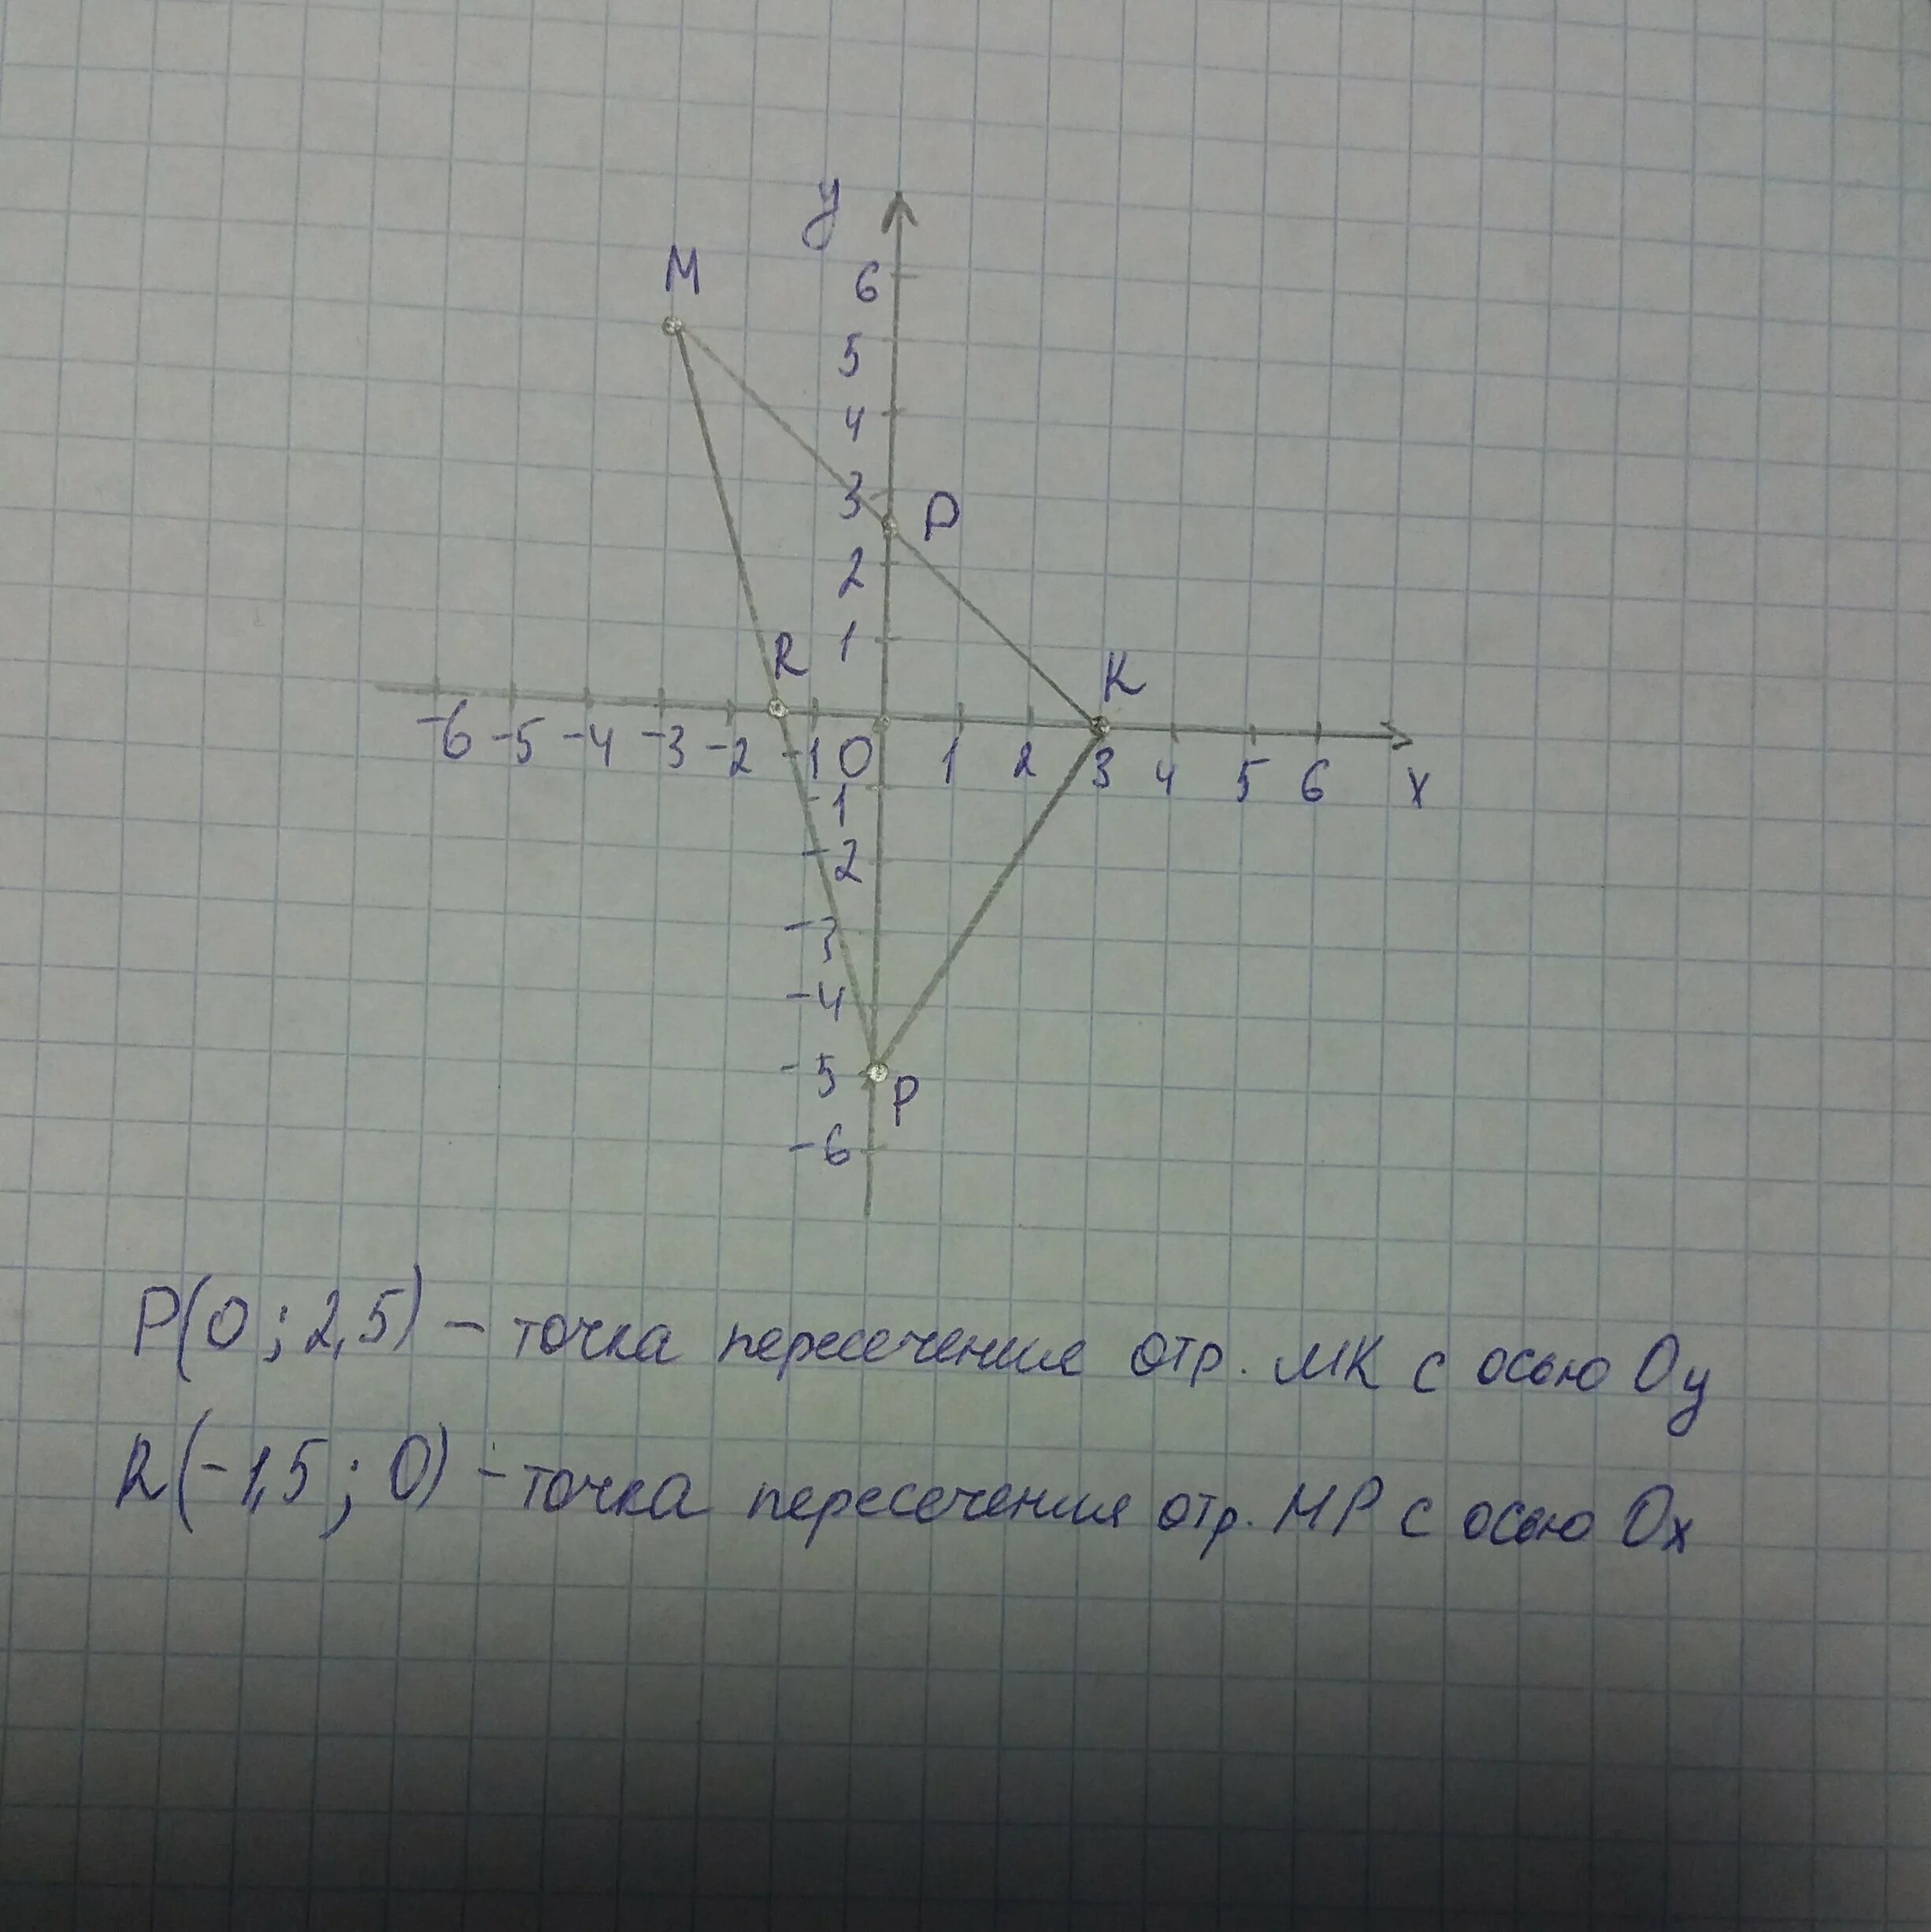 y
M
6
5
4
3 P
2
R 1 K
-6 -5 -4 -3 -2 -1 0 1 2 3 4 5 6 x
-1
-2
-3
-4
-5
P
-6
P(0; 2,5) – точка пересечения отр. МК с осью Oy
R(-1,5; 0) – точка пересечения отр. МР с осью Ox